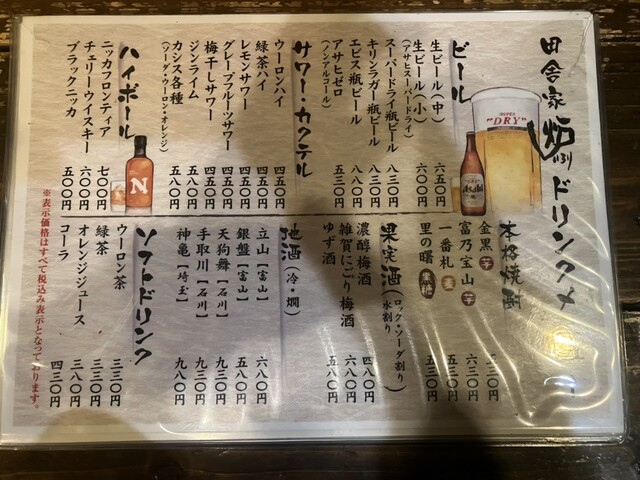 田舎家
ドリンクメ
ビール
生ビール(中) 六五〇円
生ビール(小) 六〇〇円
(アサヒスーパードライ)
スーパードライ瓶ビール 八三〇円
キリンラガー瓶ビール 八三〇円
エビス瓶ビール 八八〇円
アサヒゼロ 五三〇円
(ノンアルコール)
サワー・カクテル
ウーロンハイ 四五〇円
緑茶ハイ 四五〇円
レモンサワー 四五〇円
グレープフルーツサワー 四五〇円
梅干しサワー 四五〇円
ジンライム 五八〇円
カシス各種 五八〇円
(ソーダ・ウーロン・オレンジ)
ハイボール
ニッカフロンティア 七〇〇円
チェリーウイスキー 六〇〇円
ブラックニッカ 五〇〇円
SUPER
"DRY"
Asahi
N
本格焼酎
金黒 芋
富乃宝山 芋 六三〇円
一番札 麦 五三〇円
里の曙 黒糖
果実酒(ロック・ソーダ割り・水割り)
濃醇梅酒 四八〇円
雑賀にごり梅酒 六八〇円
ゆず酒 五八〇円
地酒(冷・燗)
立山【富山】 六八〇円
銀盤【富山】 五八〇円
天狗舞【石川】 九三〇円
手取川【石川】 九三〇円
神亀【埼玉】 九八〇円
ソフトドリンク
ウーロン茶 三三〇円
緑茶 三三〇円
オレンジジュース 三八〇円
コーラ 四三〇円
※表示価格はすべて税込み表示となっております。